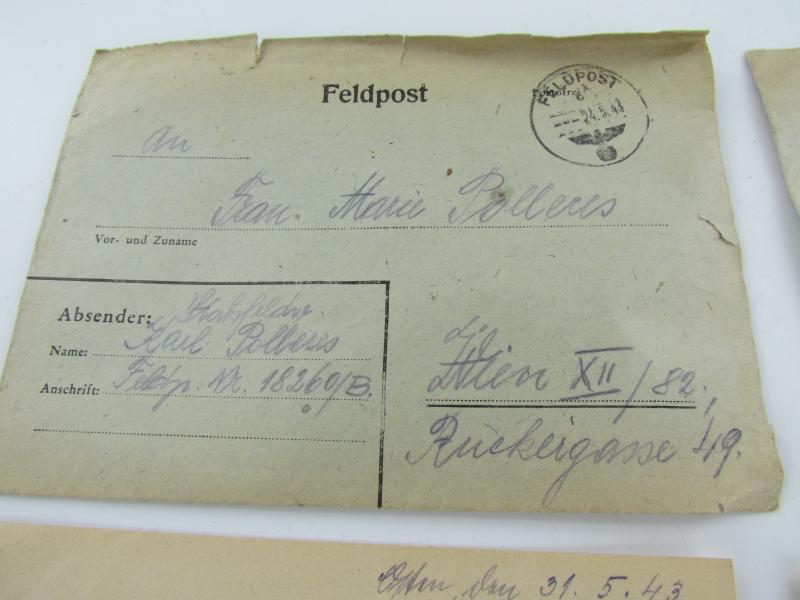 Feldpost
Portofrei
FELDPOST
24.5.43
An
Frau Marie Polleres
Vor- und Zuname
Absender: Stabsfeldw.
Name: Karl Polleres
Anschrift: Feldp. Nr. 18260/B.
Wien XII/82,
Ruckergasse 49.
den 31.5.43